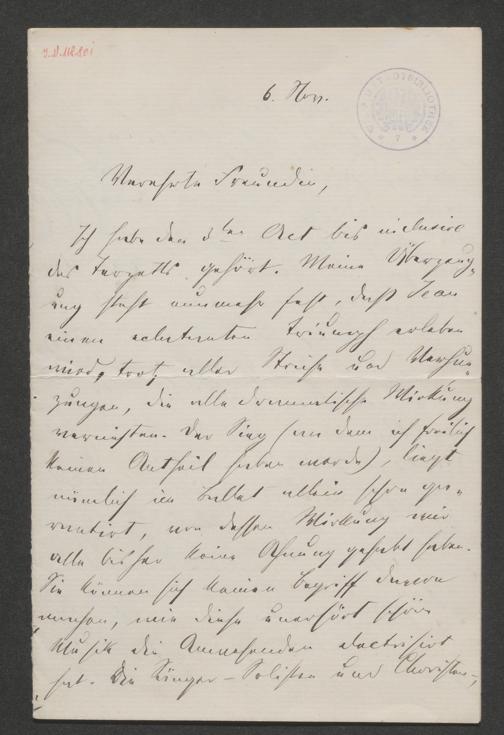 I.N. 118.801
STADTBIBLIOTHEK
6. Nov.
Verehrte Freundin,
Ich habe den 3ten Act bis inclusive
des Terzetts gehört. Meine Überzeug-
ung steht nunmehr fest, daß Jean
einen eclatanten Triumph erleben
wird, trotz aller Striche und Verhun-
zungen, die alle dramatische Wirkung
vernichten. Der Sieg (an dem ich freilich
keinen Antheil haben werde), liegt
nämlich im Ballet allein schon ga-
rantirt, von dessen Wirkung wir
alle bisher keine Ahnung gehabt haben.
Sie können sich keinen Begriff davon
machen, wie diese unerhört schöne
Musik die Anwesenden electrisirt
hat. Die Sänger – Solisten und Choristen –,